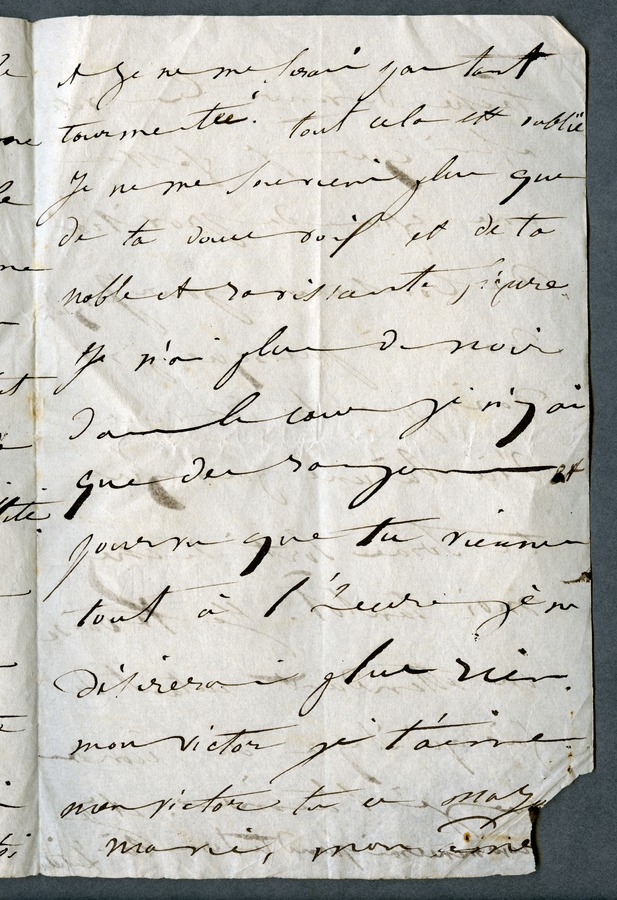 et je ne me serai pas tant
tourmentée. tout cela est oublié
Je ne me souviens plus que
de ta douce voix et de ta
noble et ravissante figure.
Je n'ai plus de noir
dans le cœur je n'y ai
que des rayons et
pourvu que tu viennes
tout à l'heure je ne
désirerai plus rien.
mon victor je t'aime
mon victor tu es mon
mon âme